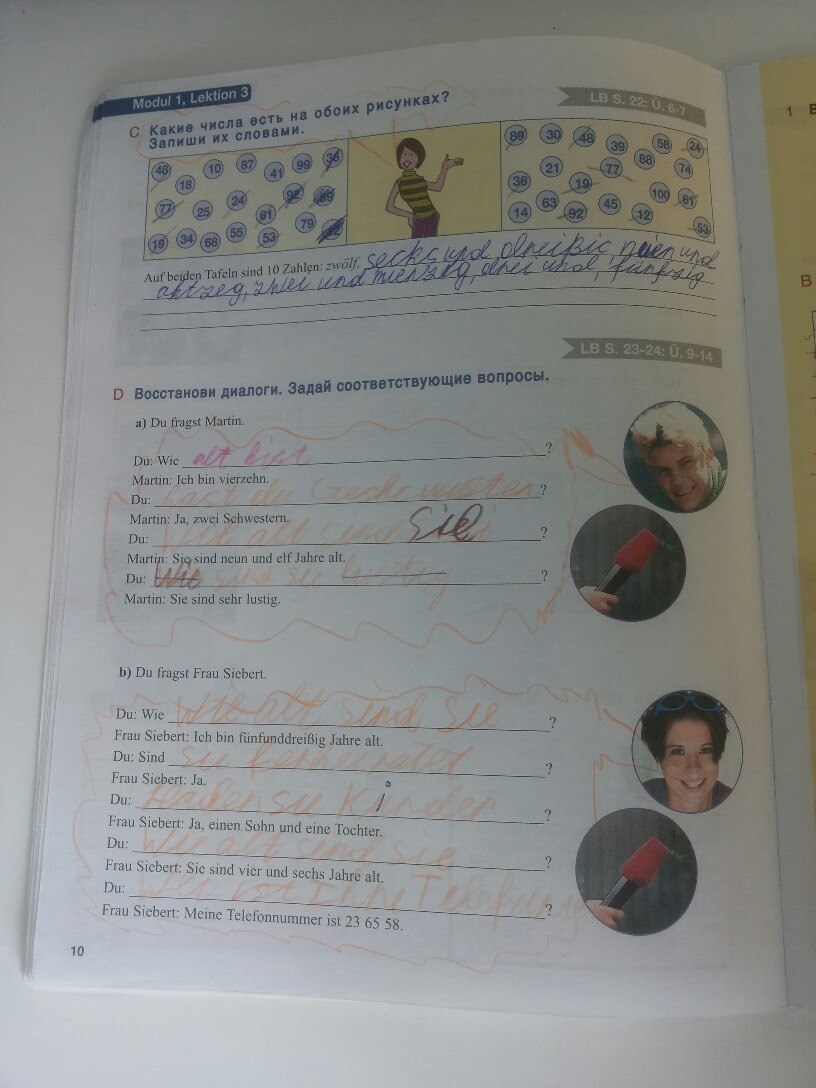 Modul 1, Lektion 3
LB S. 22: Ü. 6-7
C Какие числа есть на обоих рисунках?
Запиши их словами.
48 10 87 41 99 36
18 24 92 89
77 25 81 79
19 34 68 55 53
89 30 48 39 58 24
21 77 88 74
36 19 100 81
14 63 92 45 12 53
Auf beiden Tafeln sind 10 Zahlen: zwölf, secks und dreißic, neun und
ahtzeg, zwei und neinzeg, drei und fünfzig
LB S. 23-24: Ü. 9-14
D Восстанови диалоги. Задай соответствующие вопросы.
a) Du fragst Martin.
Du: Wie alt bist ?
Martin: Ich bin vierzehn.
Du: hast du Geschwister ?
Martin: Ja, zwei Schwestern.
Du: Wie alt sind Sie ?
Martin: Sie sind neun und elf Jahre alt.
Du: Wie sind sie lustig ?
Martin: Sie sind sehr lustig.
b) Du fragst Frau Siebert.
Du: Wie alt sind Sie ?
Frau Siebert: Ich bin fünfunddreißig Jahre alt.
Du: Sind sie ?
Frau Siebert: Ja.
Du: Haben sie Kinder ?
Frau Siebert: Ja, einen Sohn und eine Tochter.
Du: Wie alt sind sie ?
Frau Siebert: Sie sind vier und sechs Jahre alt.
Du: ist Ihre ?
Frau Siebert: Meine Telefonnummer ist 23 65 58.
10
1
B